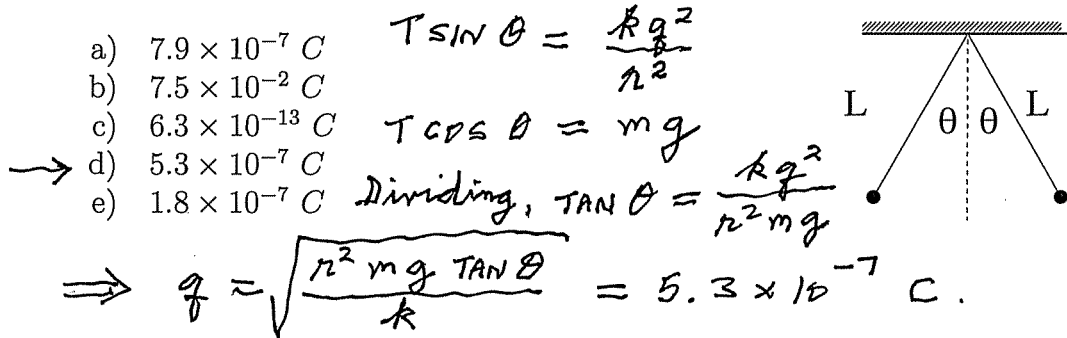 a) 7.9 × 10⁻⁷ C
b) 7.5 × 10⁻² C
c) 6.3 × 10⁻¹³ C
→ d) 5.3 × 10⁻⁷ C
e) 1.8 × 10⁻⁷ C
T SIN θ = kq²/r²
T COS θ = mg
Dividing, TAN θ = kq²/r²mg
⇒ q = √(r² mg TAN θ / k) = 5.3 × 10⁻⁷ C.
L θ θ L